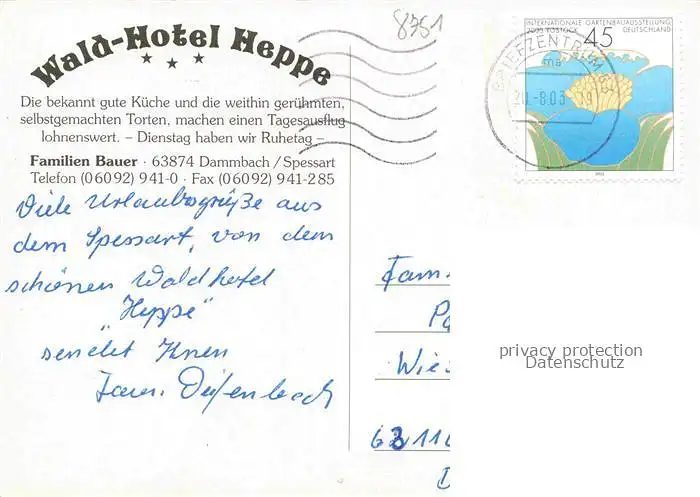 8751
Wald-Hotel Heppe
★ ★ ★
Die bekannt gute Küche und die weithin gerühmten,
selbstgemachten Torten, machen einen Tagesausflug
lohnenswert. – Dienstag haben wir Ruhetag –
Familien Bauer · 63874 Dammbach / Spessart
Telefon (0 60 92) 941-0 · Fax (0 60 92) 941-285
Viele Urlaubsgrüße aus
dem Spessart, von dem
schönen Waldhotel
„Heppe"
sendet Ihnen
Fam. Diefenbach
INTERNATIONALE GARTENBAUAUSSTELLUNG
2003 ROSTOCK DEUTSCHLAND
45
BRIEFZENTRUM
ma
-8.03
2003
Fam.
Wies
6311
privacy protection
Datenschutz